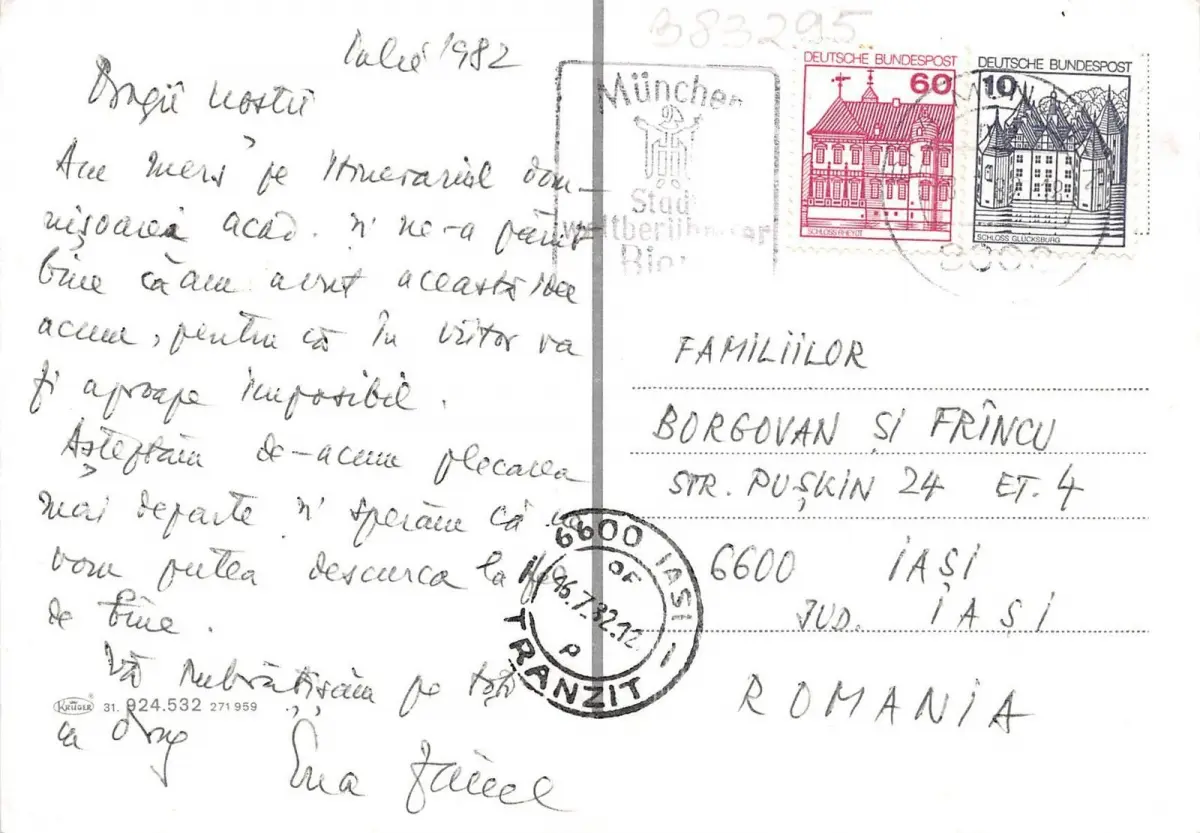 Iulie 1982
Dragii noștri
Am mers pe itinerariul dom-
nișoarei acad. și ne-a părut
bine că am avut această idee
acum, pentru că în viitor va
fi aproape imposibil.
Așteptăm de-acum plecarea
mai departe și sperăm că ne
vom putea descurca la fel
de bine.
Vă îmbrățișăm pe toți
cu drag
KRÜGER 31. 924.532 271 959
383295
München
Stadt
weltberühmter
Bier
DEUTSCHE BUNDESPOST
60
SCHLOSS RHEYDT
DEUTSCHE BUNDESPOST
10
SCHLOSS GLÜCKSBURG
FAMILIILOR
BORGOVAN ȘI FRÎNCU
STR. PUȘKIN 24 ET. 4
6600 IAȘI
JUD. IAȘI
ROMANIA
6600 IAȘI
OF
P
TRANZIT